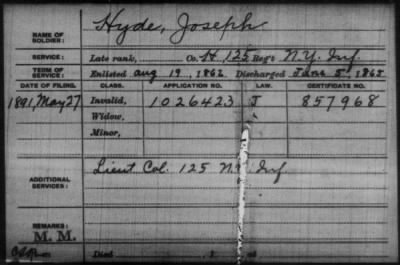 Hyde, Joseph
NAME OF SOLDIER:
SERVICE: Late rank, Co. H, 125 Reg't N.Y. Inf.
TERM OF SERVICE: Enlisted Aug 19, 1862 Discharged June 5, 1865
DATE OF FILING. CLASS. APPLICATION NO. LAW. CERTIFICATE NO.
1891, May 27 Invalid, 1026423 J 857968
Widow,
Minor,
ADDITIONAL SERVICES: Lieut Col. 125 N.Y. Inf.
REMARKS:
M. M.
Died